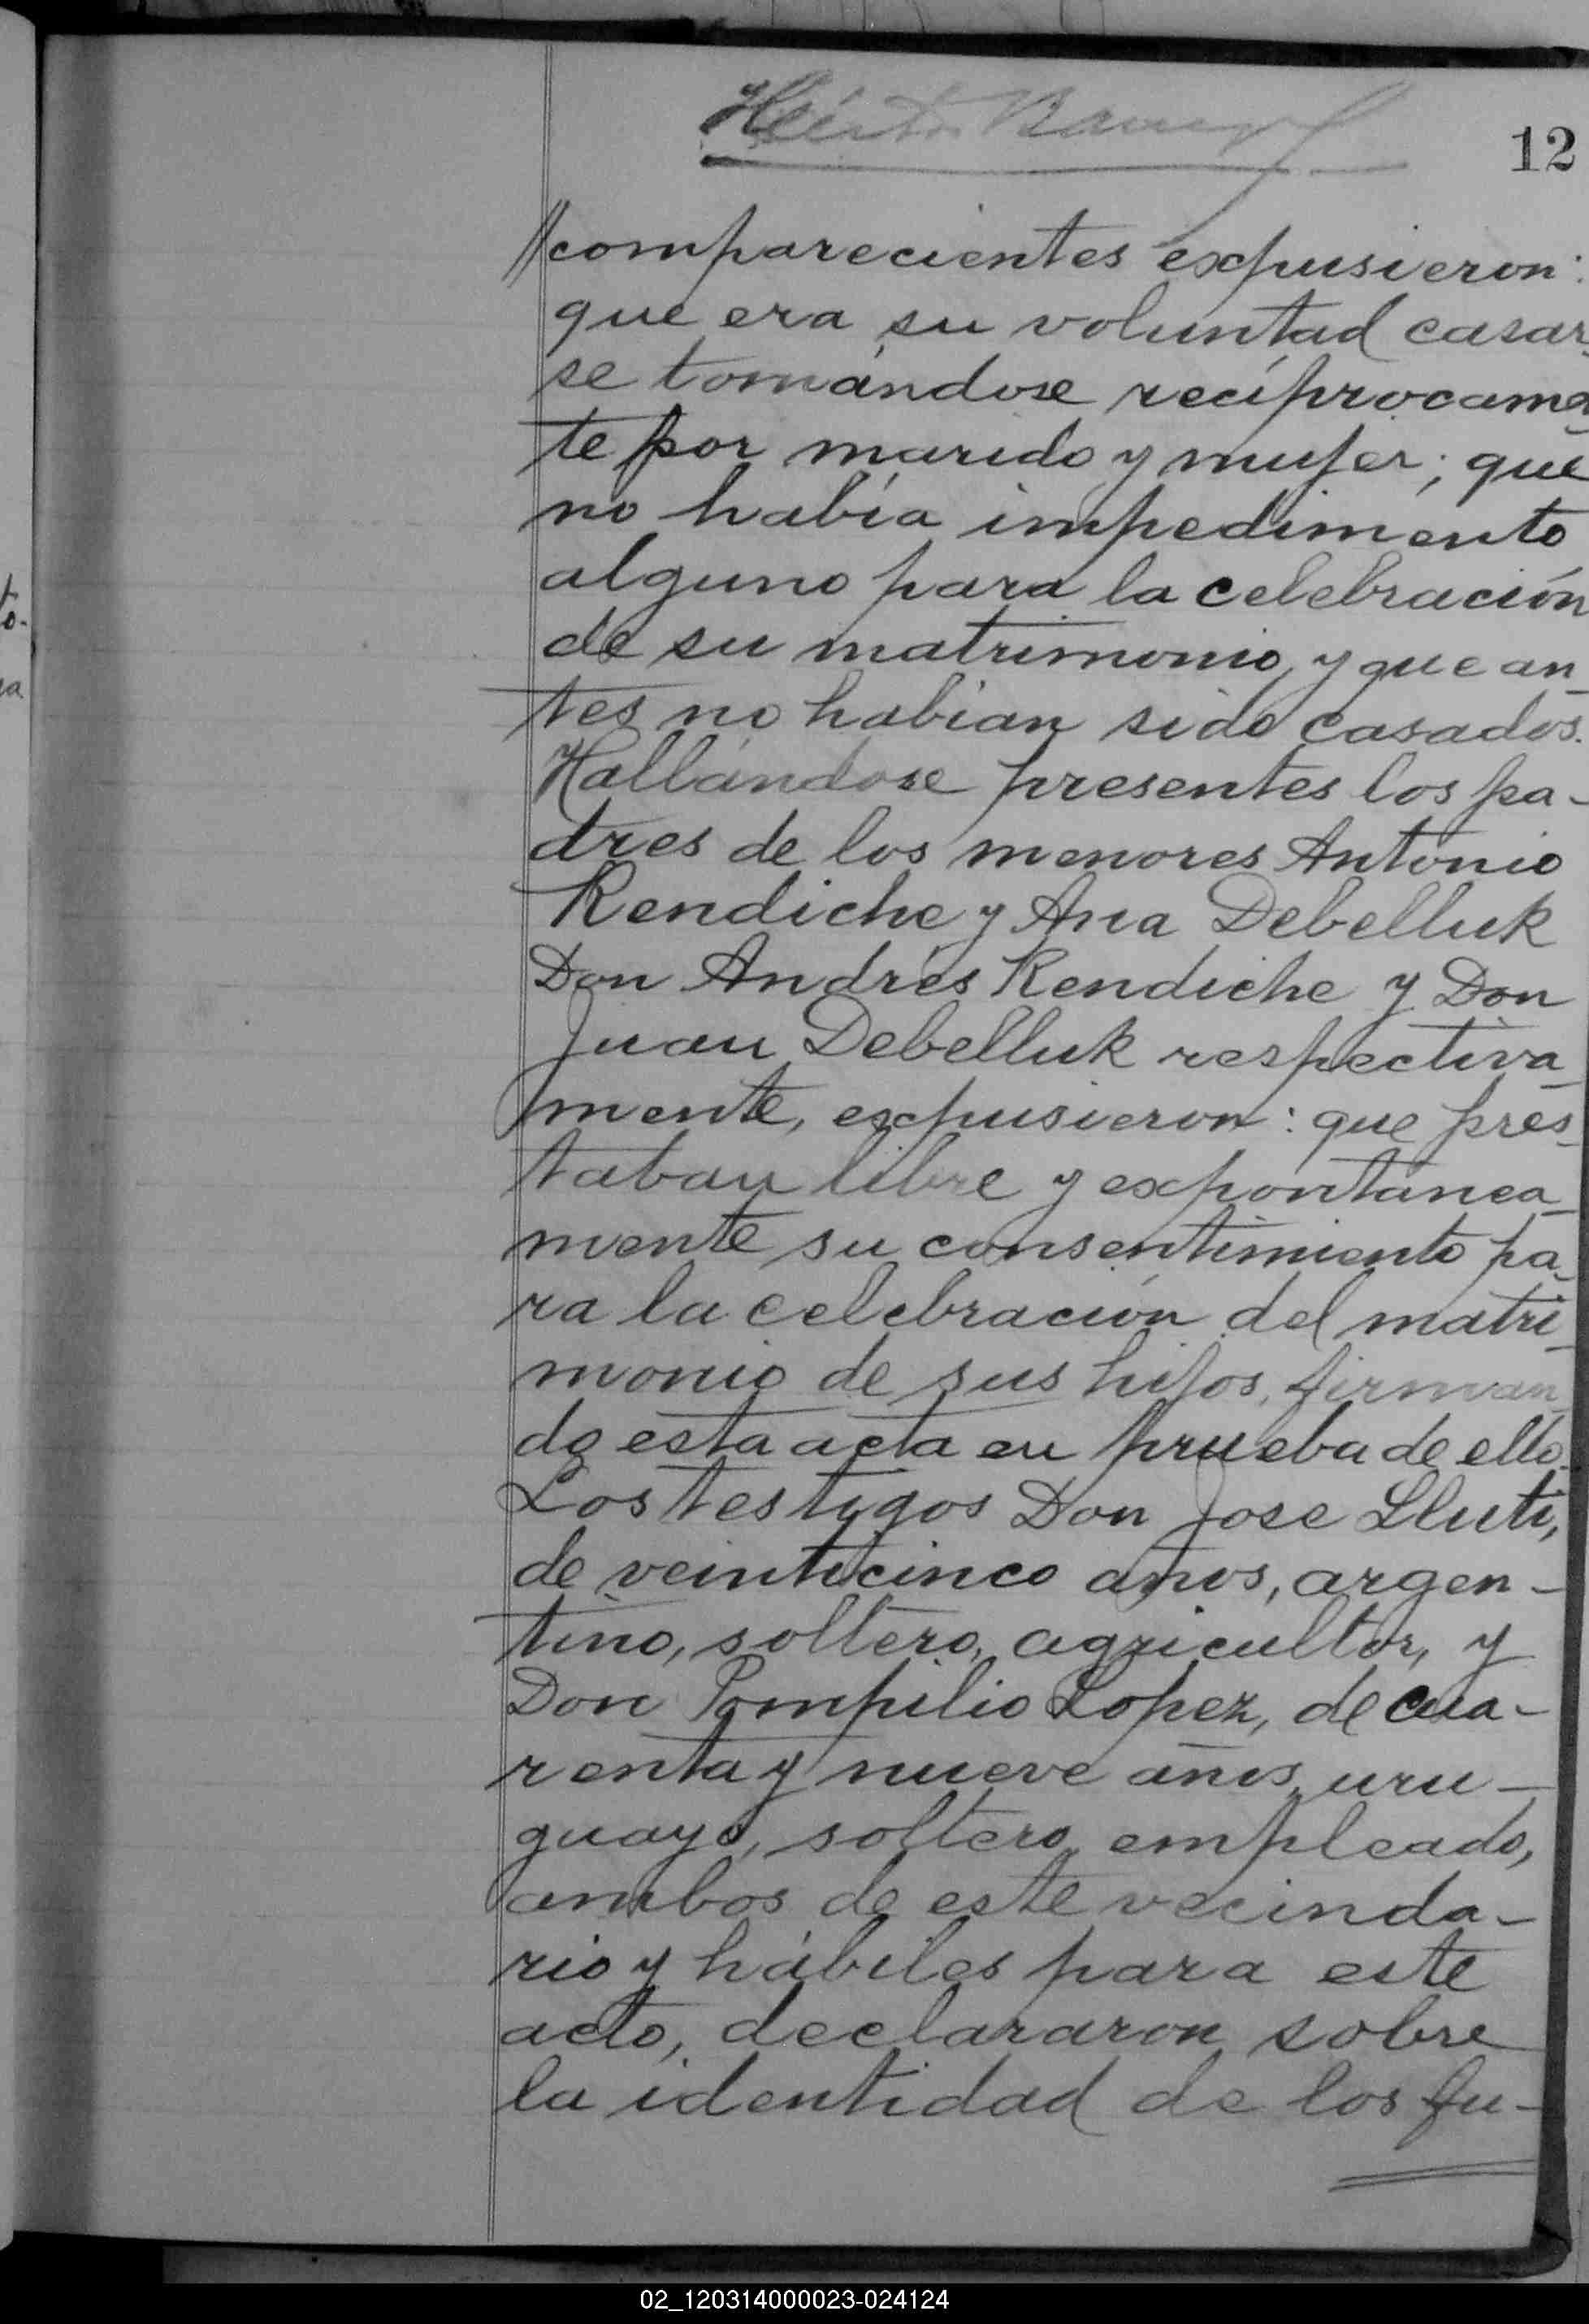 Héctor
12
//comparecientes expusieron:
que era su voluntad casar
se tomándose recíprocamen
te por marido y mujer; que
no había impedimento
alguno para la celebración
de su matrimonio, y que an_
tes no habían sido casados.
Hallándose presentes los pa-
dres de los menores Antonio
Rendiche y Ana Debelluk
Don Andrés Rendiche y Don
Juan Debelluk respectiva_
mente, expusieron: que pres_
taban libre y expontanea_
mente su consentimiento pa_
ra la celebración del matri_
monio de sus hijos, firman_
do esta acta en prueba de ello.
Los testigos Don Jose Lluti,
de veinticinco años, argen-
tino, soltero, agricultor, y
Don Pompilio Lopez, de cua-
renta y nueve años, uru-
guayo, soltero, empleado,
ambos de este vecinda-
rio y hábiles para este
acto, declararon sobre
la identidad de los fu-
to-
ra
02_120314000023-024124